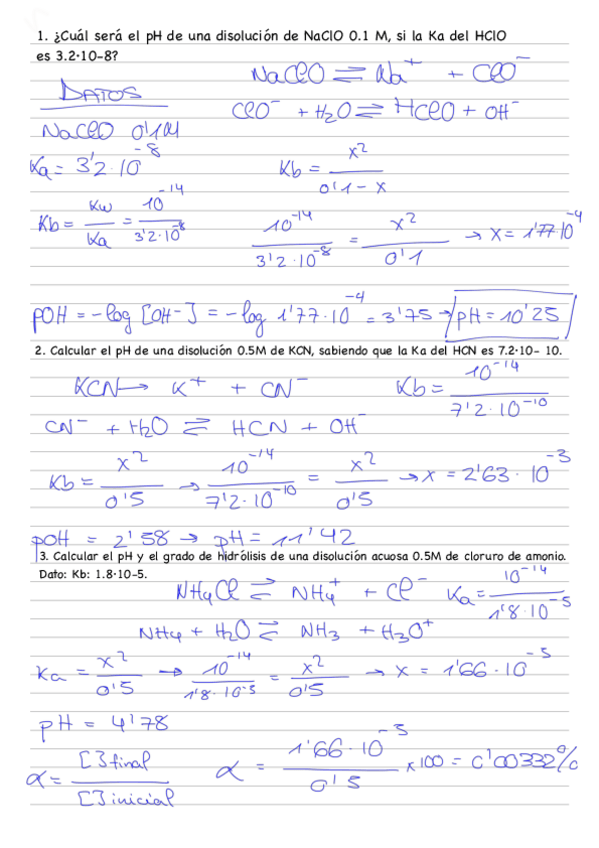 1. ¿Cuál será el pH de una disolución de NaClO 0.1 M, si la Ka del HClO
es 3.2·10-8?
NaClO ⇌ Na⁺ + ClO⁻
DATOS
ClO⁻ + H₂O ⇌ HClO + OH⁻
NaClO 0'1M
Ka = 3'2·10⁻⁸
Kb = x² / 0'1 - x
Kb = Kw / Ka = 10⁻¹⁴ / 3'2·10⁻⁸
10⁻¹⁴ / 3'2·10⁻⁸ = x² / 0'1 → x = 1'77·10⁻⁴
pOH = -log [OH⁻] = -log 1'77·10⁻⁴ = 3'75 → pH = 10'25
2. Calcular el pH de una disolución 0.5M de KCN, sabiendo que la Ka del HCN es 7.2·10- 10.
KCN → K⁺ + CN⁻ Kb = 10⁻¹⁴ / 7'2·10⁻¹⁰
CN⁻ + H₂O ⇌ HCN + OH⁻
Kb = x² / 0'5 → 10⁻¹⁴ / 7'2·10⁻¹⁰ = x² / 0'5 → x = 2'63·10⁻³
pOH = 2'58 → pH = 11'42
3. Calcular el pH y el grado de hidrólisis de una disolución acuosa 0.5M de cloruro de amonio.
Dato: Kb: 1.8·10-5.
NH₄Cl ⇌ NH₄⁺ + Cl⁻ Ka = 10⁻¹⁴ / 1'8·10⁻⁵
NH₄ + H₂O ⇌ NH₃ + H₃O⁺
Ka = x² / 0'5 → 10⁻¹⁴ / 1'8·10⁻⁵ = x² / 0'5 → x = 1'66·10⁻⁵
pH = 4'78
α = [ ]final / [ ]inicial α = 1'66·10⁻⁵ / 0'5 x100 = 0'00332%